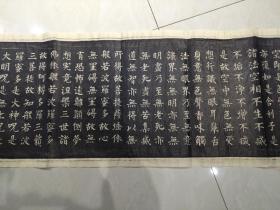 不垢不淨不增不減
是故空中無色無受
想行識無眼耳鼻舌
身意無色聲香味觸
法無眼界乃至無意
識界無無明亦無無
明盡乃至無老死亦
無老死盡無苦集滅
道無智亦無得以無
所得故菩提薩埵依
般若波羅蜜多故心
無罣礙無罣礙故無
有恐怖遠離顛倒夢
想究竟涅槃三世諸
佛依般若波羅蜜多
故得阿耨多羅三藐
三菩提故知般若波
羅蜜多是大神呪是
大明呪是無